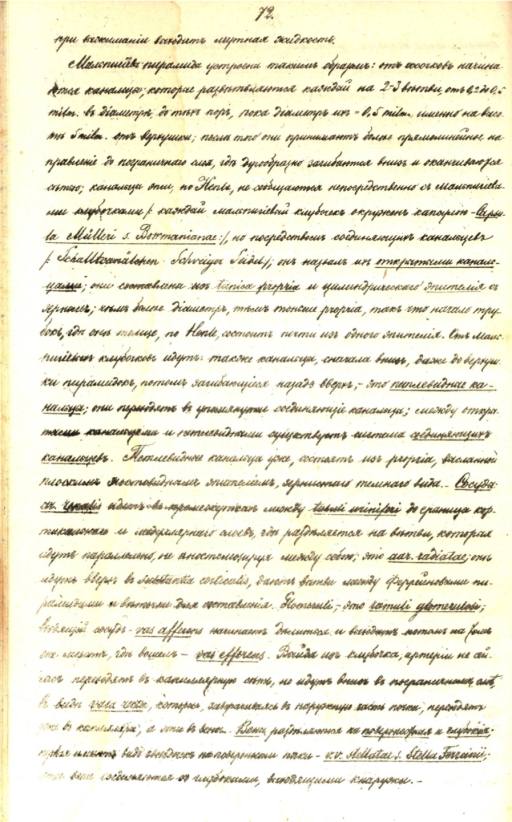 72.
при выжимании выходитъ мутная жидкость.
Мальпигіева пирамида устроена такимъ образомъ: отъ сосочковъ начина
ются канальцы, которые развѣтвляются каждый на 2-3 вѣтви, отъ 0,2 до 0,5
milm. въ діаметрѣ, до тѣхъ поръ, пока діаметръ ихъ = 0,5 milm. именно на высо
тѣ 5 milm. отъ верхушки; послѣ того они принимаютъ болѣе прямолинейное на
правленіе до пограничнаго слоя, гдѣ дугообразно загибаются внизъ и оканчиваются
сѣтью; канальцы эти, по Henle, не сообщаются непосредственно съ мальпигіевы
ми клубочками /: каждый мальпигіевый клубочекъ окруженъ капсулею - Capsu
la Mülleri s. Bowmanianae:/, но посредствомъ соединяющихъ канальцевъ
/: Schaltkanälchen Schweiger Seidel/; онъ назвалъ ихъ открытыми каналь
цами; они составлены изъ tunica propria и цилиндрическаго эпителія съ
зерномъ; чѣмъ болѣе діаметръ, тѣмъ тоньше propria, такъ что начало тру
бокъ, гдѣ онѣ толще, по Henle, состоитъ почти изъ одного эпителія. Отъ Маль
пигіевыхъ клубочковъ идутъ также канальцы, сначала внизъ, даже до верхуш
ки пирамидокъ, потомъ загибающіеся назадъ вверхъ, - это петлевидные ка-
нальцы; они переходятъ въ упомянутые соединяющіе канальцы; между откры
тыми канальцами и петлевидными существуетъ система соединяющихъ
канальцевъ. Петлевидные канальцы уже, состоятъ изъ propria, высланной
плоскимъ мостовиднымъ эпителіемъ, зернистаго темнаго вида. - Сосуды
art. renalis идетъ въ промежуткахъ между tubuli uriniferi до границы кор
тикальнаго и медулярнаго слоевъ, гдѣ раздѣляется на вѣтви, которыя
идутъ параллельно, не анастомозируя между собою; это aar. radiatae; они
идутъ вверхъ въ substantia corticalis, даютъ вѣтви между ферреиновыми пи
рамидами и вѣтвями для составленія Glomeruli; - это ramuli glomerulosi;
входящій сосудъ - vas afferens начинаетъ дѣлиться и выходитъ потомъ на томъ
же мѣстѣ, гдѣ вошелъ - vas efferens. Выйдя изъ клубочка, артеріи не
переходятъ въ капиллярную сѣть, но идутъ внизъ въ пограничномъ слоѣ,
въ видѣ vasa recta, которые, заворачиваясь въ наружную часть почки, переходятъ
уже въ капилляры, а эти въ вены. Вены раздѣляются на поверхностныя и глубокія;
первыя имѣютъ видъ звѣздокъ на поверхности почки - v.v. stellatae s. Stella Ferreinii;
эти вены соединяются съ глубокими, выходящими кнаружи. -